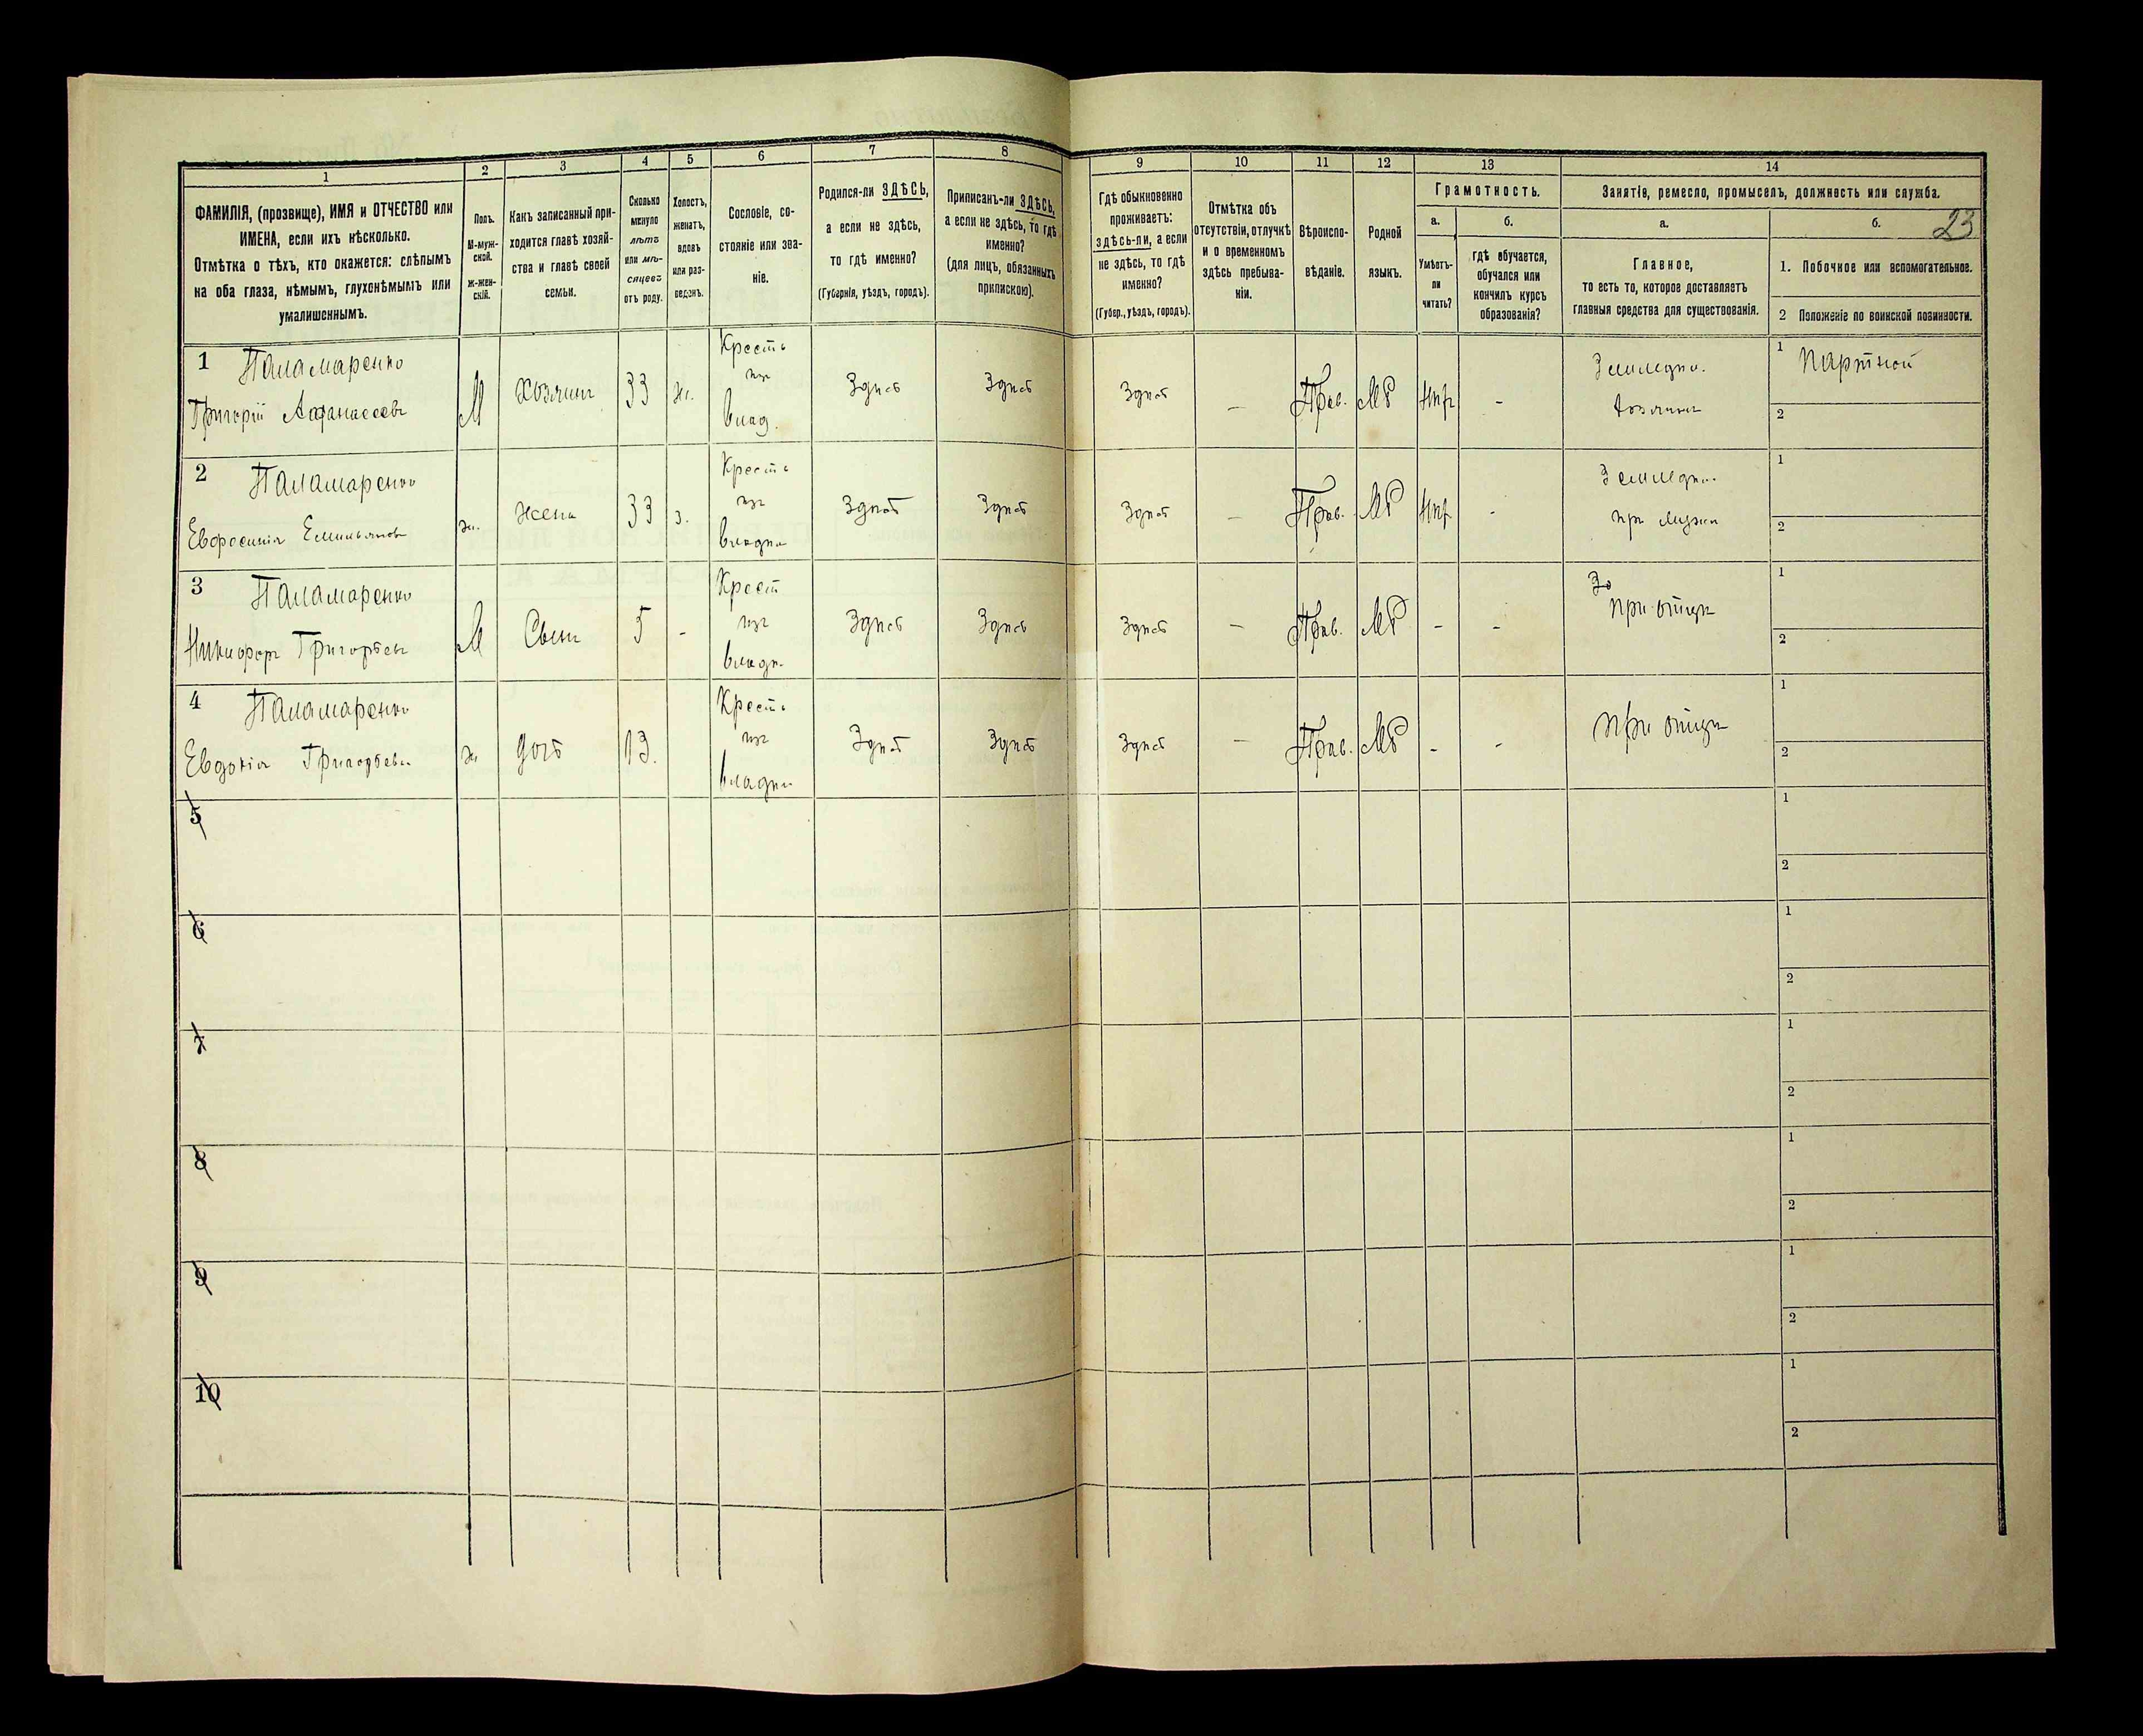 1 2 3 4 5 6 7 8 9 10 11 12 13 14
ФАМИЛІЯ, (прозвище), ИМЯ и ОТЧЕСТВО или
ИМЕНА, если ихъ нѣсколько.
Отмѣтка о тѣхъ, кто окажется: слѣпымъ
на оба глаза, нѣмымъ, глухонѣмымъ или
умалишеннымъ.
Полъ.
М-муж-
ской.
ж-жен-
скій.
Какъ записанный при-
ходится главѣ хозяй-
ства и главѣ своей
семьи.
Сколько
минуло
лѣтъ
или мѣ-
сяцевъ
отъ роду.
Холостъ,
женатъ,
вдовъ
или раз-
веденъ.
Сословіе, со-
стояніе или зва-
ніе.
Родился-ли ЗДѢСЬ,
а если не здѣсь,
то гдѣ именно?
(Губернія, уѣздъ, городъ).
Приписанъ-ли ЗДѢСЬ,
а если не здѣсь, то гдѣ
именно?
(для лицъ, обязанныхъ
припискою).
Гдѣ обыкновенно
проживаетъ:
здѣсь-ли, а если
не здѣсь, то гдѣ
именно?
(Губер., уѣздъ, городъ).
Отмѣтка объ
отсутствіи, отлучкѣ
и о временномъ
здѣсь пребыва-
ніи.
Вѣроиспо-
вѣданіе.
Родной
языкъ.
Грамотность.
а.
Умѣетъ-
ли
читать?
б.
гдѣ обучается,
обучался или
кончилъ курсъ
образованія?
Занятіе, ремесло, промыселъ, должность или служба.
а.
Главное,
то есть то, которое доставляетъ
главныя средства для существованія.
б. 23
1. Побочное или вспомогательное.
2 Положеніе по воинской повинности.
1 Паламаренко
Григорій Афанасьевъ
М Хозяинъ 33 ж.
Крестьь
изъ
влад.
Здѣсь Здѣсь Здѣсь — Прав. Мр нѣтъ -
Земледѣл.
Хозяинъ
1 Портной
2
2 Паламаренко
Евфросинія Емельянова
ж. жена 33 з.
Крестьь
изъ
владѣл
Здѣсь Здѣсь Здѣсь — Прав. Мр нѣтъ -
Земледѣл.
при мужѣ
1
2
3 Паламаренко
Никифоръ Григорьевъ
М Сынъ 5 -
Крест
изъ
владѣ.
Здѣсь Здѣсь Здѣсь — Прав. Мр - -
Зе
при отцѣ
1
2
4 Паламаренко
Евдокія Григорьева
ж дочь 13.
Крестьь
изъ
владѣл
Здѣсь Здѣсь Здѣсь — Прав. Мр - -
при отцѣ
1
2
5
1
2
6
1
2
7
1
2
8
1
2
9
1
2
10
1
2